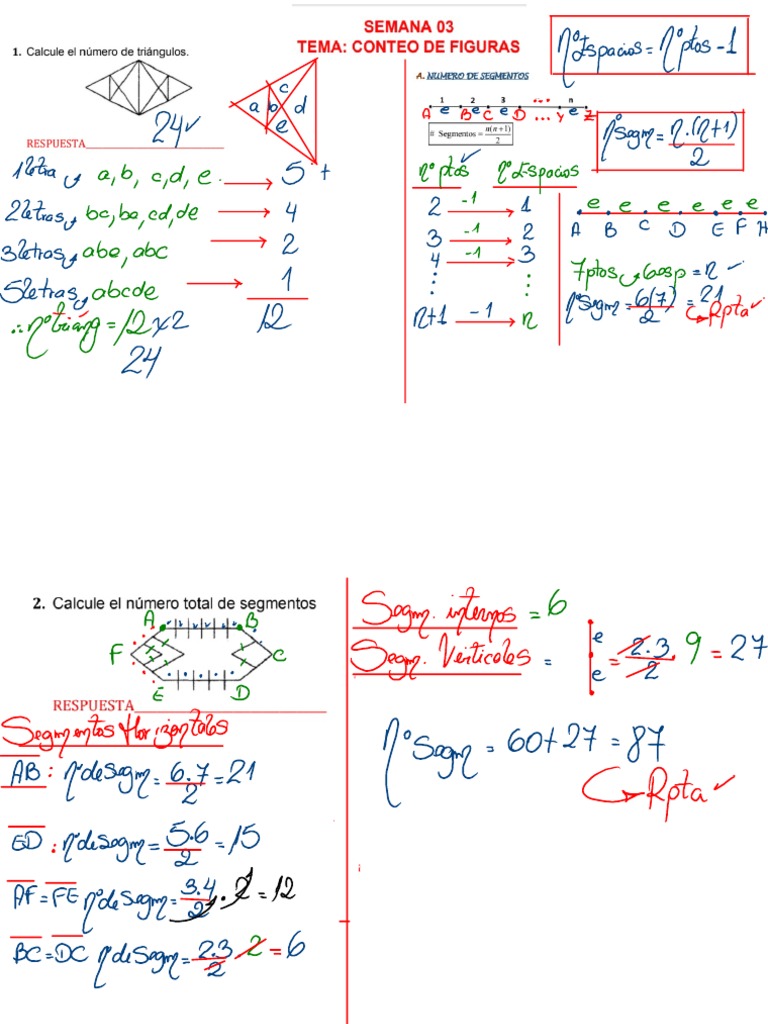 SEMANA 03
TEMA: CONTEO DE FIGURAS
1. Calcule el número de triángulos.
a b c d e
24✓
RESPUESTA
1letra a, b, c, d, e. → 5 +
2letras bc, be, cd, de → 4
3letras abe, abc → 2
5letras abcde → 1
12
∴ nº triáng = 12 x 2
24
nº Espacios = nº ptos - 1
A. NUMERO DE SEGMENTOS
1 2 3 ... n
e e e e
A B C D ... Y Z
# Segmentos = n(n+1)/2
nº Segm = n.(n+1)/2
nº ptos nº Espacios
2 -1 → 1
3 -1 → 2
4 -1 → 3
⋮ ⋮
n+1 -1 → n
e e e e e e
A B C D E F H
7ptos 6esp = n ✓
nº Segm = 6(7)/2 = 21
Rpta ✓
2. Calcule el número total de segmentos
A B
F C
E D
RESPUESTA
Segmentos Horizontales
AB : nº de Segm = 6.7/2 = 21
ED : nº de Segm = 5.6/2 = 15
AF = FE nº de Segm = 3.4/2 . 2 = 12
BC = DC nº de Segm = 2.3/2 . 2 = 6
Segm. internos = 6
Segm. Verticales = e e = 2.3/2 . 9 = 27
nº Segm = 60 + 27 = 87
Rpta ✓